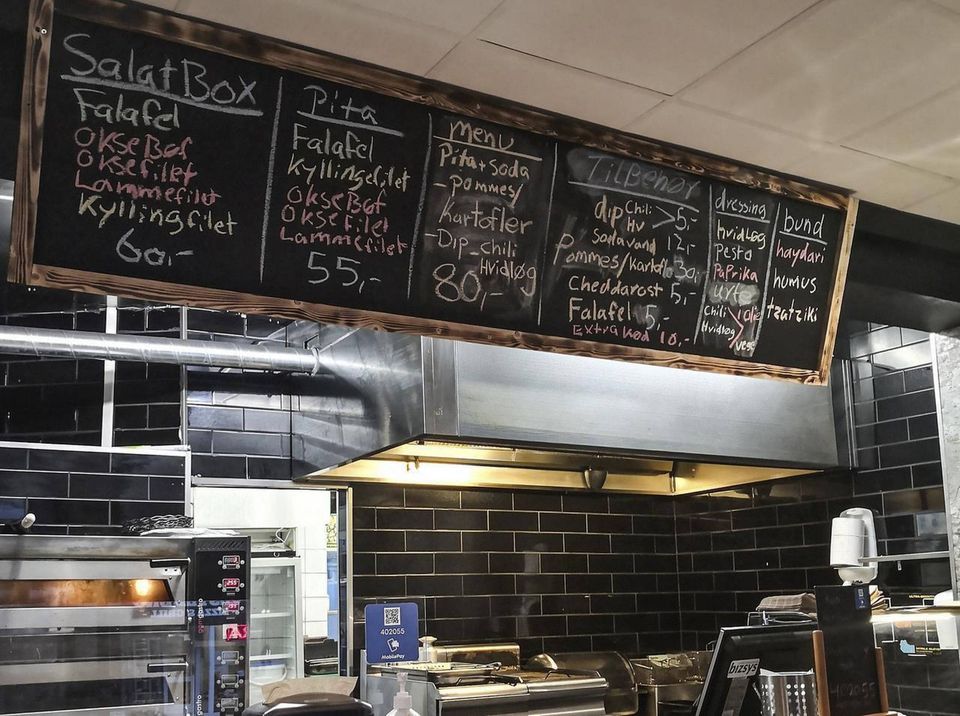 SalatBox
Falafel
OKSEBØf
Oksefilet
Lammefilet
Kyllingfilet
60,-
Pita
Falafel
Kyllingefilet
OKSEBØf
Oksefilet
Lammefilet
55,-
Menu
Pita+Soda
-pommes/
Kartofler
-Dip_chili
Hvidløg
80,-
TilBehør
dip Chili > 5,-
Hv
Sodavand 12,-
Pommes/kartofl 30,-
Cheddarost 5,-
Falafel 5,-
Extra Kød 10,-
dressing
hvidløg
Pesto
Paprika
urte
chili
Hvidløg
bund
haydari
humus
tzatziki
402055
MobilePay
bizsys